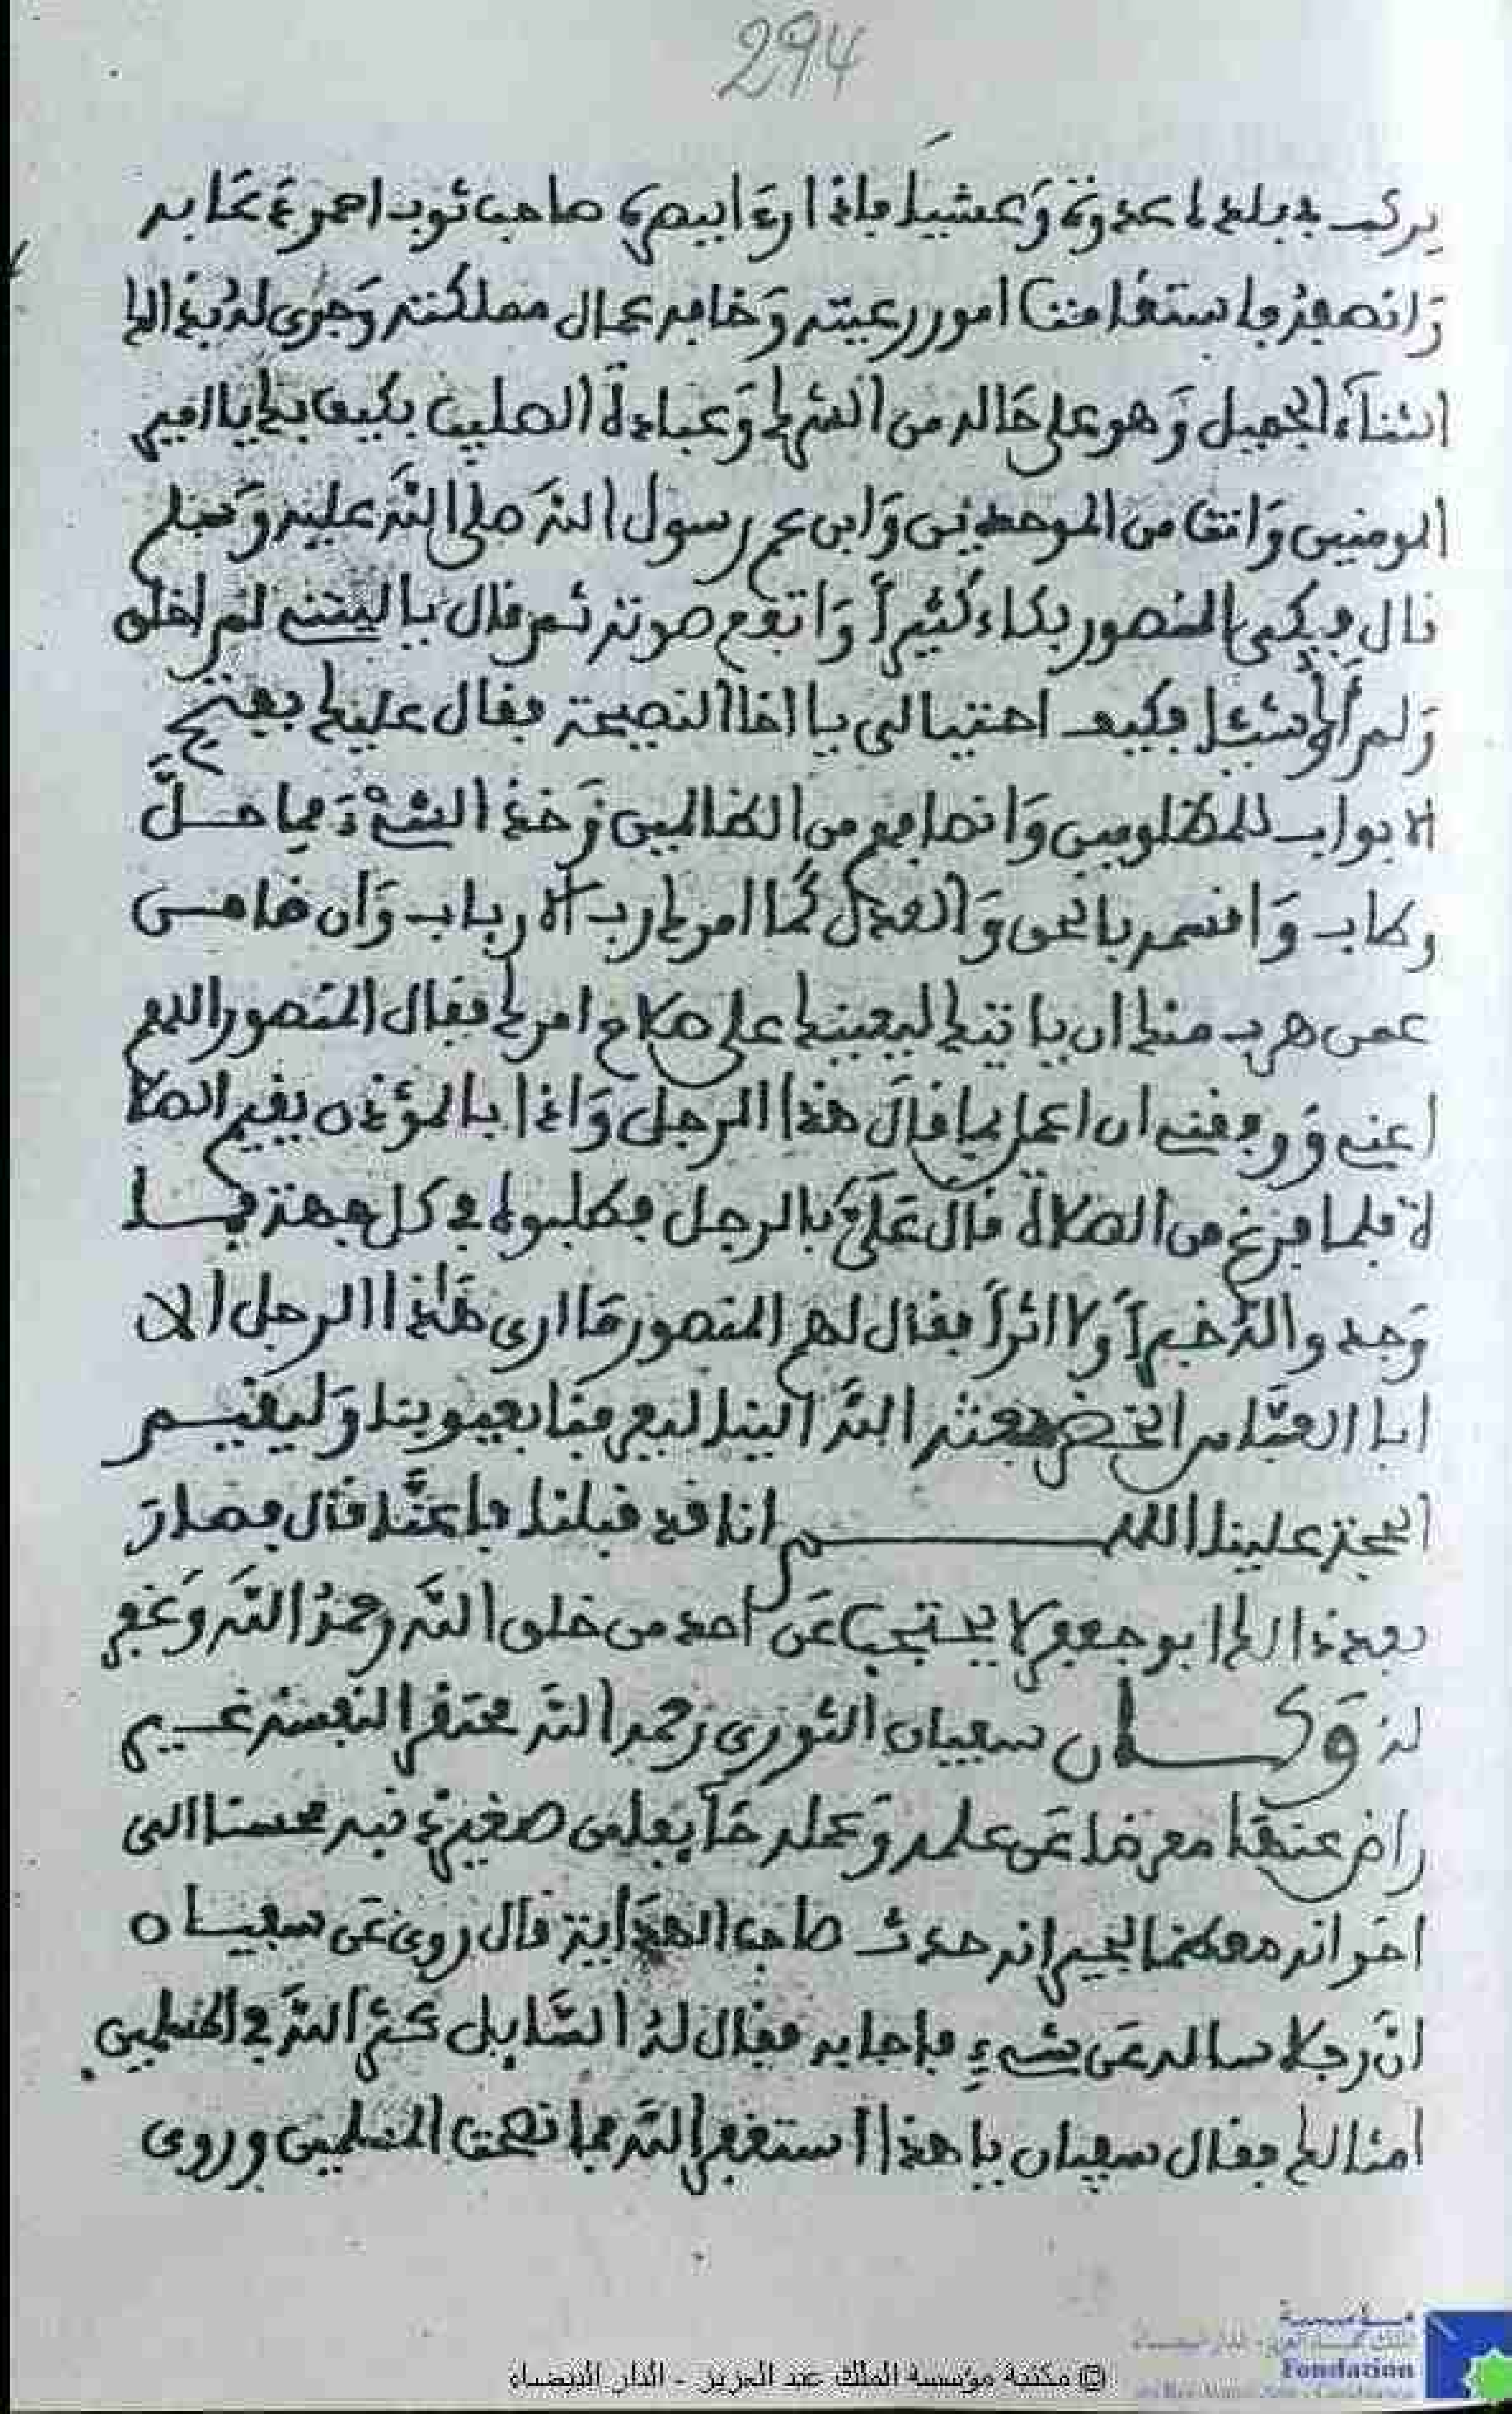 294
يركب في بلده غدوة وعشيا فاذا رءا بيصره صاحب ثوب احمر دعا به
وانصفه فاستقامت امور رعيته وخافه عمال مملكته وجرى له بذالك
الثناء الجميل وهو على حاله من الشرك وعبادة الصليب فكيف بك يا امير
المومنين وانت من الموحدين وابن عم رسول الله صلى الله عليه وسلم
قال فبكى المنصور بكاء كثيرا وارتفع صوته ثم قال يا ليتني لم اخلق
ولم اك شيئا فكيف احتيالي يا اخا النصيحة فقال عليك بفتح
الابواب للمظلومين وانصافهم من الظالمين وخذ الشيء مما حل
وطاب واقسمه بالحق والعدل كما امرك رب الارباب وان ضامن
عمن هرب منك ان ياتيك ليعينك على صلاح امرك فقال المنصور اللهم
اعني ووفقني ان اعمل بما قال هذا الرجل واذا بالمؤذن يقيم الصلا
ة فلما فرغ من الصلاة قال علي بالرجل فطلبوه في كل جهة فما
وجدوا له خبرا ولا اثرا فقال لهم المنصور ما ارى هاذا الرجل الا
ابا العباس الخضر بعثه الله الينا ليعرفنا بعيوبنا وليقيم
الحجة علينا اللهم انا قد قبلنا فاعنا قال فصار
بعد ذالك ابو جعفر لا يحتجب عن احد من خلق الله رحمه الله وغفر
له وكان سفيان الثوري رحمه الله محتقرا لنفسه غير
راض عنها معرضا عن علمه وعمله
اخوانه معظما لجيرانه حدث صاحب الهداية قال روي عن سفيان
ان رجلا ساله عن شيء فاجابه فقال له السايل كثر الله في المسلمين
امثالك فقال سفيان يا هذا استغفر الله مما نصحت المسلمين وروى
© مكتبة مؤسسة الملك عبد العزيز - الدار البيضاء
مؤسسة
Fondation